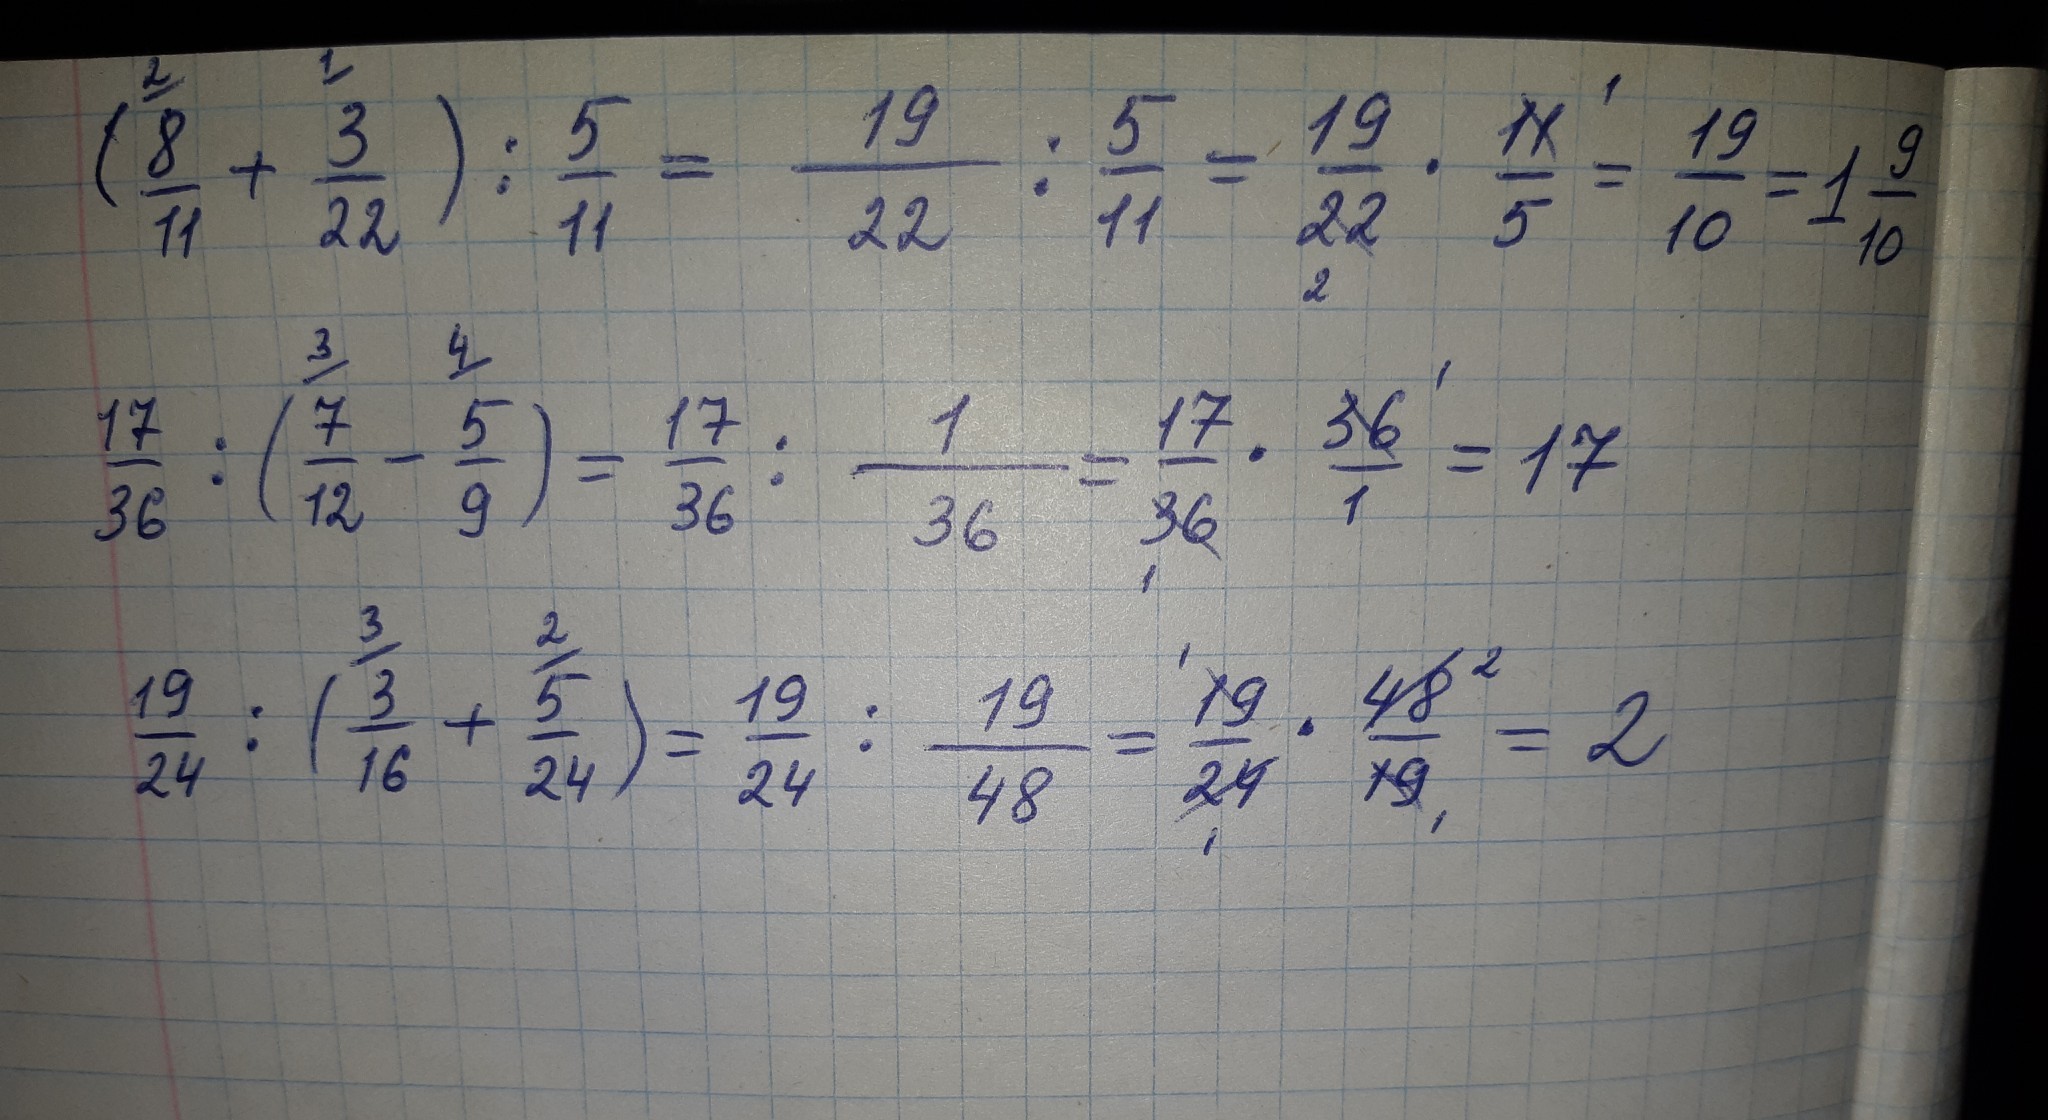 (8/11 2/ + 3/22 1/) : 5/11 = 19/22 : 5/11 = 19/22 2 · 11/5 1 = 19/10 = 1 9/10
17/36 : (7/12 3/ - 5/9 4/) = 17/36 : 1/36 = 17/36 1 · 36/1 1 = 17
19/24 : (3/16 3/ + 5/24 2/) = 19/24 : 19/48 = 1 19/24 1 · 48/19 2 1 = 2